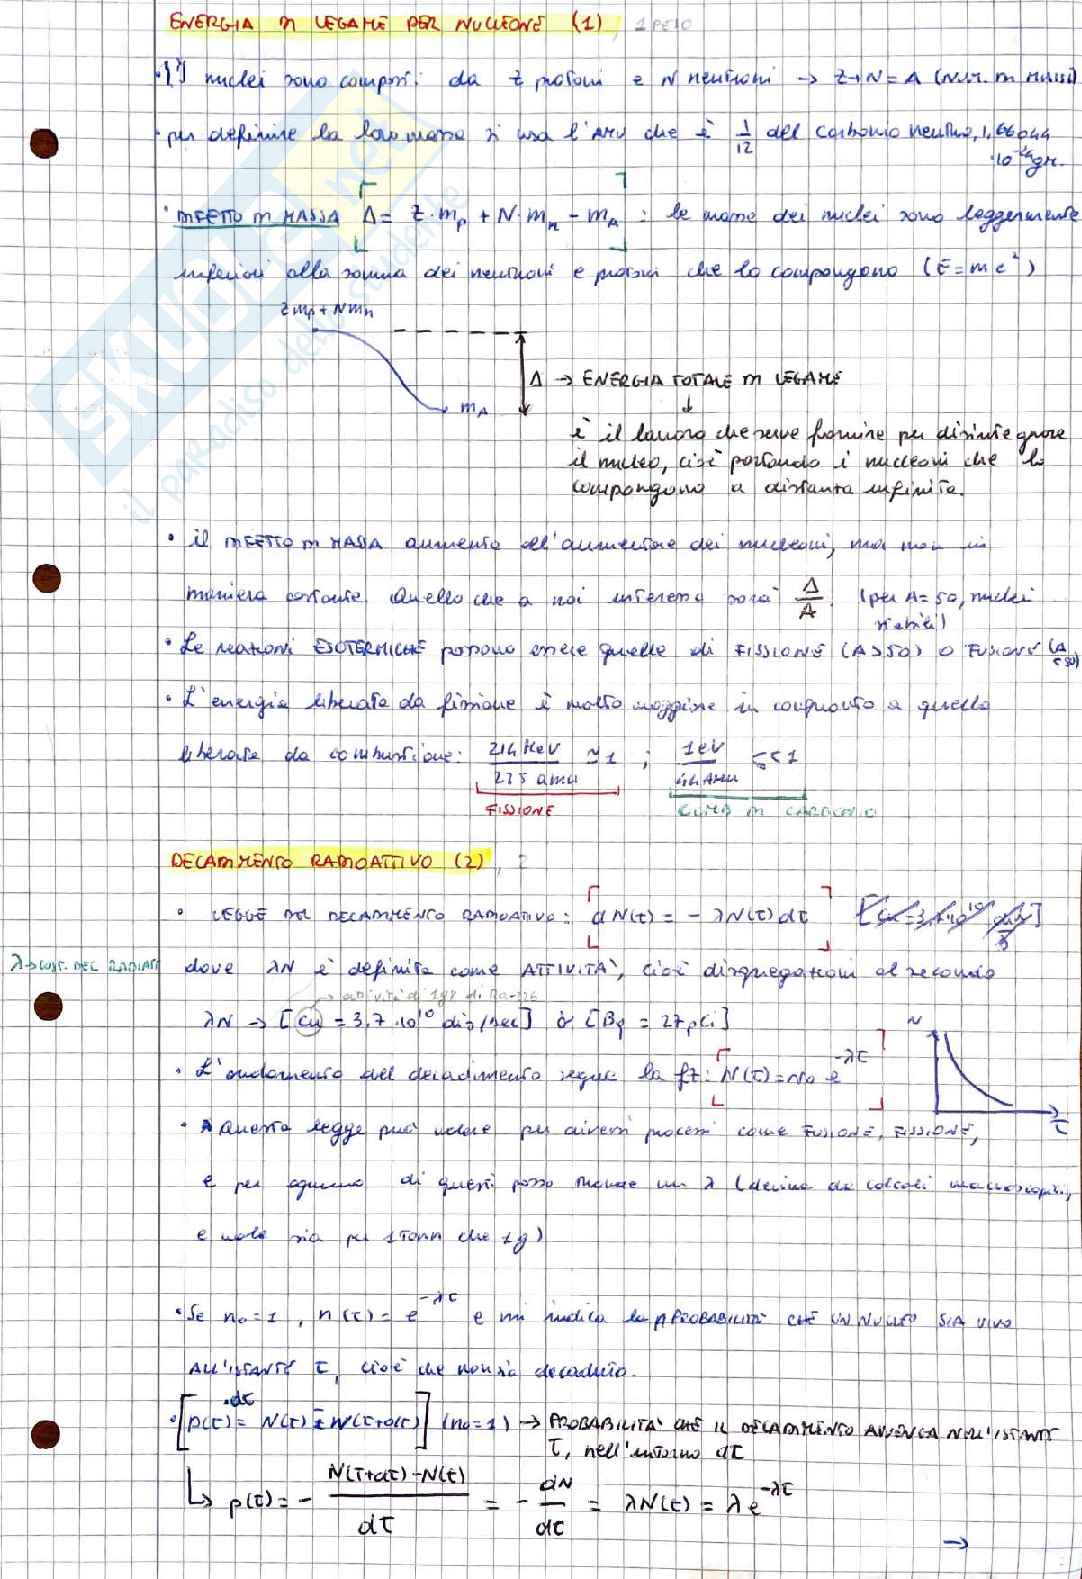 ENERGIA DI LEGAME PER NUCLEONE (1)
nuclei sono composti da Z protoni e N neutroni → Z+N = A (NUM. DI MASSA)
per definire la loro massa si usa l'AMU che è 1/12 del carbonio neutro, 1,66044
·10⁻²⁴ gr.
DIFETTO DI MASSA Δ = Z·mp + N·mn − mA : le masse dei nuclei sono leggermente
inferiori alla somma dei neutroni e protoni che lo compongono (E=mc²)
Zmp + Nmn
Δ → ENERGIA TOTALE DI LEGAME
mA
↓
è il lavoro che serve fornire per disintegrare
il nucleo, cioè portando i nucleoni che lo
compongono a distanza infinita.
• il DIFETTO DI MASSA aumenta all'aumentare dei nucleoni, ma non in
maniera costante. Quello che a noi interessa sarà Δ/A. (per A=50, nuclei
stabili)
• Le reazioni ESOTERMICHE possono essere quelle di FISSIONE (A>50) o FUSIONE (A
<50)
• L'energia liberata da fissione è molto maggiore in confronto a quella
liberata da combustione: 214 MeV / 235 amu ≃ 1 ; 1eV / 44 AMU << 1
FISSIONE
DI CARBONIO
DECADIMENTO RADIOATTIVO (2)
• LEGGE DEL DECADIMENTO RADIOATTIVO: dN(τ) = − λN(τ) dτ
dove λN è definita come ATTIVITÀ, cioè disgregazioni al secondo
attività di 1gr di Ra-226
λN → [Cu = 3,7·10¹⁰ dis/sec] o [Bq = 27 pCi]
• L'andamento del decadimento segue la fz: N(τ) = N₀ e^−λτ
N
τ
• Questa legge può valere per diversi processi come FUSIONE, FISSIONE,
e per ognuno di questi posso trovare un λ (deriva da calcoli macroscopici,
e vale sia per 1 TONN che 1g)
• Se n₀=1, n(τ) = e^−λτ e mi indica la PROBABILITÀ CHE UN NUCLEO SIA VIVO
ALL'ISTANTE τ, cioè che non sia decaduto.
• [p(τ)·dτ = N(τ) − N(τ+dτ)] (n₀=1) → PROBABILITÀ CHE IL DECADIMENTO AVVENGA NELL'ISTANTE
τ, nell'intorno dτ
↳ p(τ) = − N(τ+dτ)−N(τ) / dτ = − dN/dτ = λN(τ) = λ e^−λτ
→